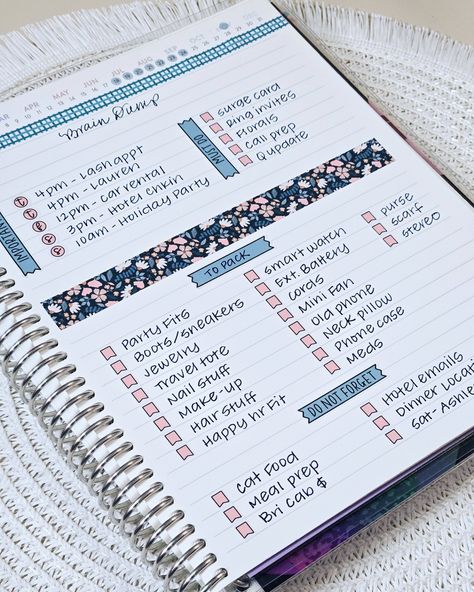 AR APR MAY JUN JUL AUG SEP OCT
Brain Dump
IMPORTANT
4pm - Lash appt
4pm - Lauren
12pm - car rental
3pm - Hotel Chkin
10am - Holiday party
MUST DO
Surge card
Ring invites
Florals
Call prep
Q update
TO PACK
Party Fits
Boots/sneakers
Jewelry
Travel tote
Nail stuff
Make-up
Hair stuff
Happy hr Fit
smart watch
Ext. Battery
Cords
Mini Fan
Old phone
Neck pillow
Phone case
Meds
purse
scarf
stereo
DO NOT FORGET
Cat Food
Meal prep
Bri Cab $
Hotel emails
Dinner Locat
Sat- Ashle